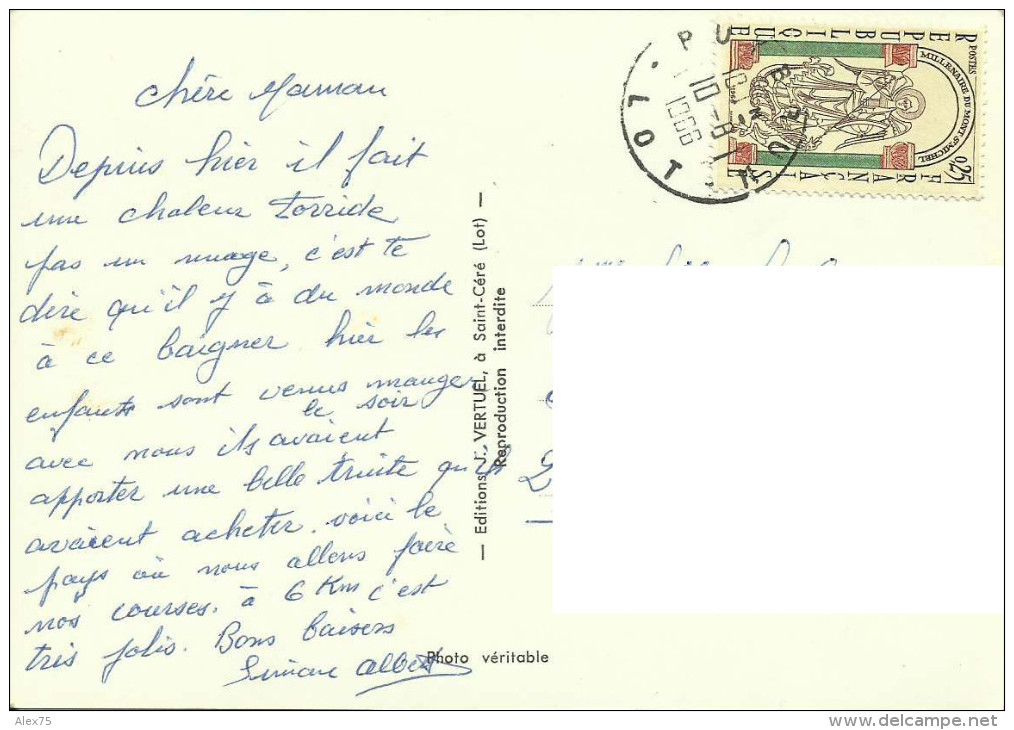 chère Maman
Depuis hier il fait
une chaleur torride
pas un nuage, c'est te
dire qu'il y à du monde
à ce baigner hier les
enfants sont venus manger
le soir
avec nous ils avaient
apporter une belle truite qu'ils
avaient acheter. voici le
pays où nous allons faire
nos courses. à 6 Km c'est
très jolis. Bons baisers
Simone Albert
— Editions J. VERTUEL, à Saint-Céré (Lot) —
Reproduction interdite
Photo véritable
PUYBRUN
LOT
10 -8
1966
REPUBLIQUE
FRANCAISE
POSTES
MILLENAIRE DU MONT ST MICHEL
0,25
Alex75
www.delcampe.net